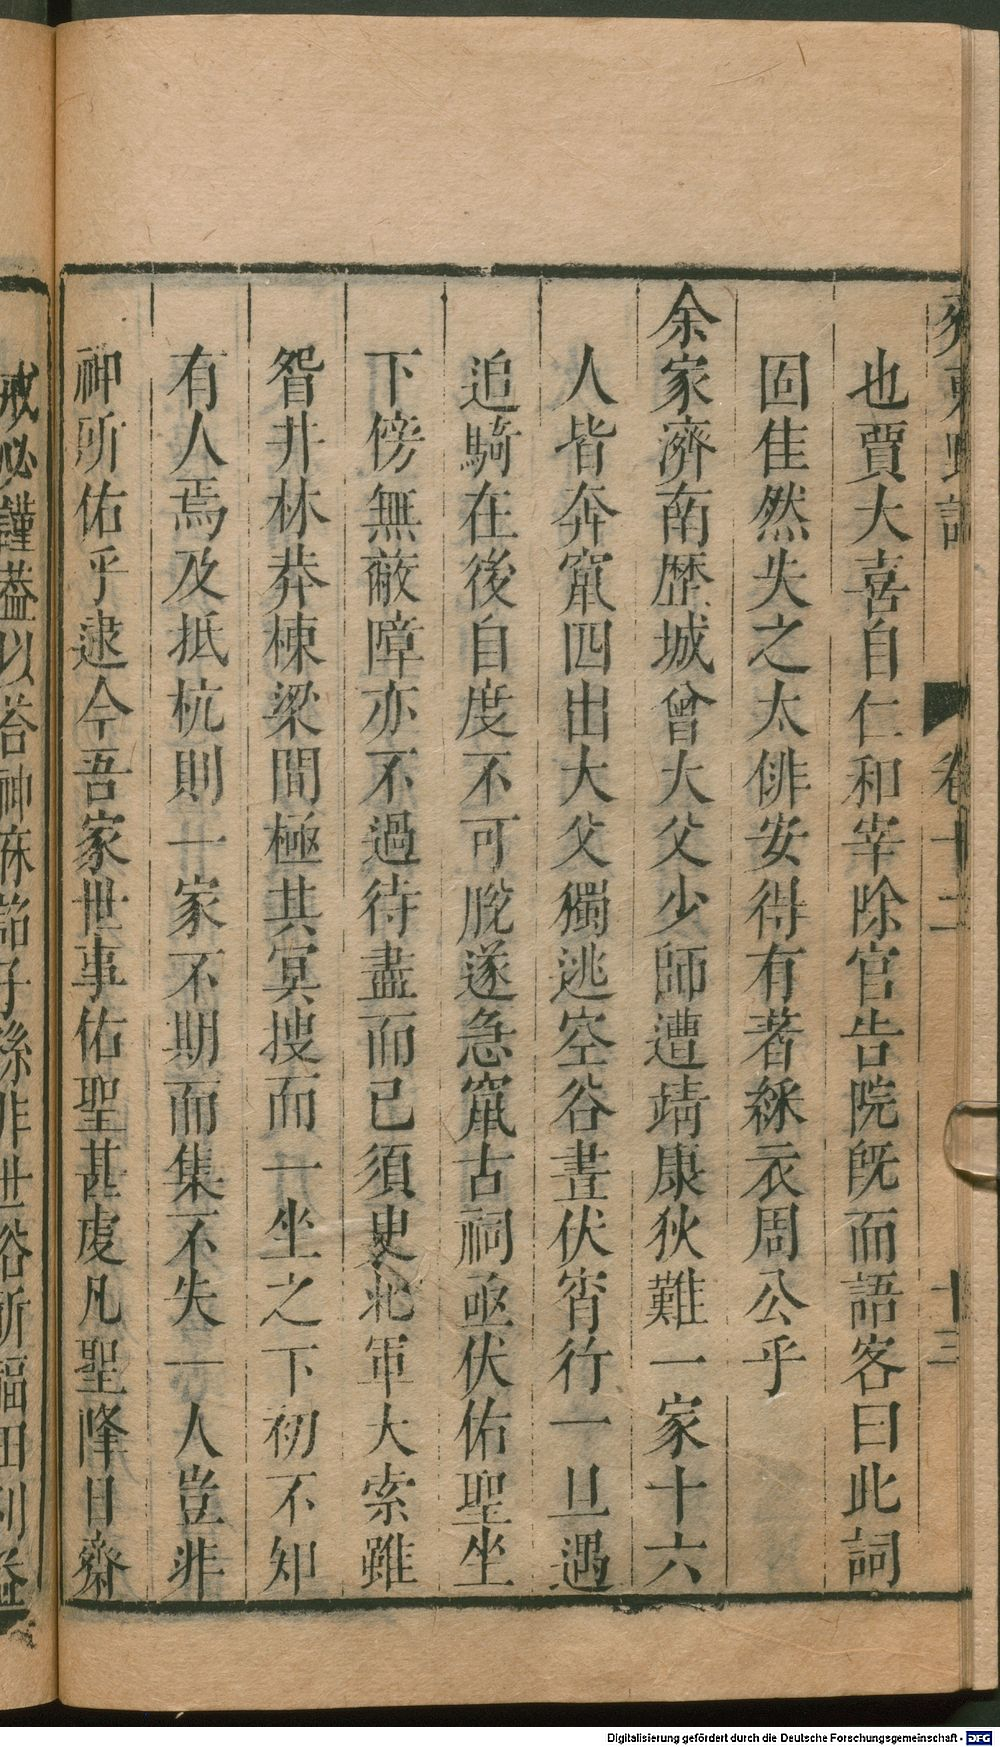 齊東野語 卷十二 十三
也賈大喜自仁和宰除官告院旣而語客曰此詞
固佳然失之太俳安得有著綵衣周公乎
余家濟南歷城曾大父少師遭靖康狄難一家十六
人皆奔竄四出大父獨逃空谷晝伏宵行一旦遇
追騎在後自度不可脫遂急竄古祠亟伏佑聖坐
下傍無蔽障亦不過待盡而已須㬰北軍大索雖
眢井林莽棟梁間極其冥搜而一坐之下初不知
有人焉及抵杭則一家不期而集不失一人豈非
神所佑乎逮今吾家世事佑聖甚虔凡聖降日齋
戒必謹葢以荅神庥詔子孫非世俗祈福田利益
Digitalisierung gefördert durch die Deutsche Forschungsgemeinschaft - DFG